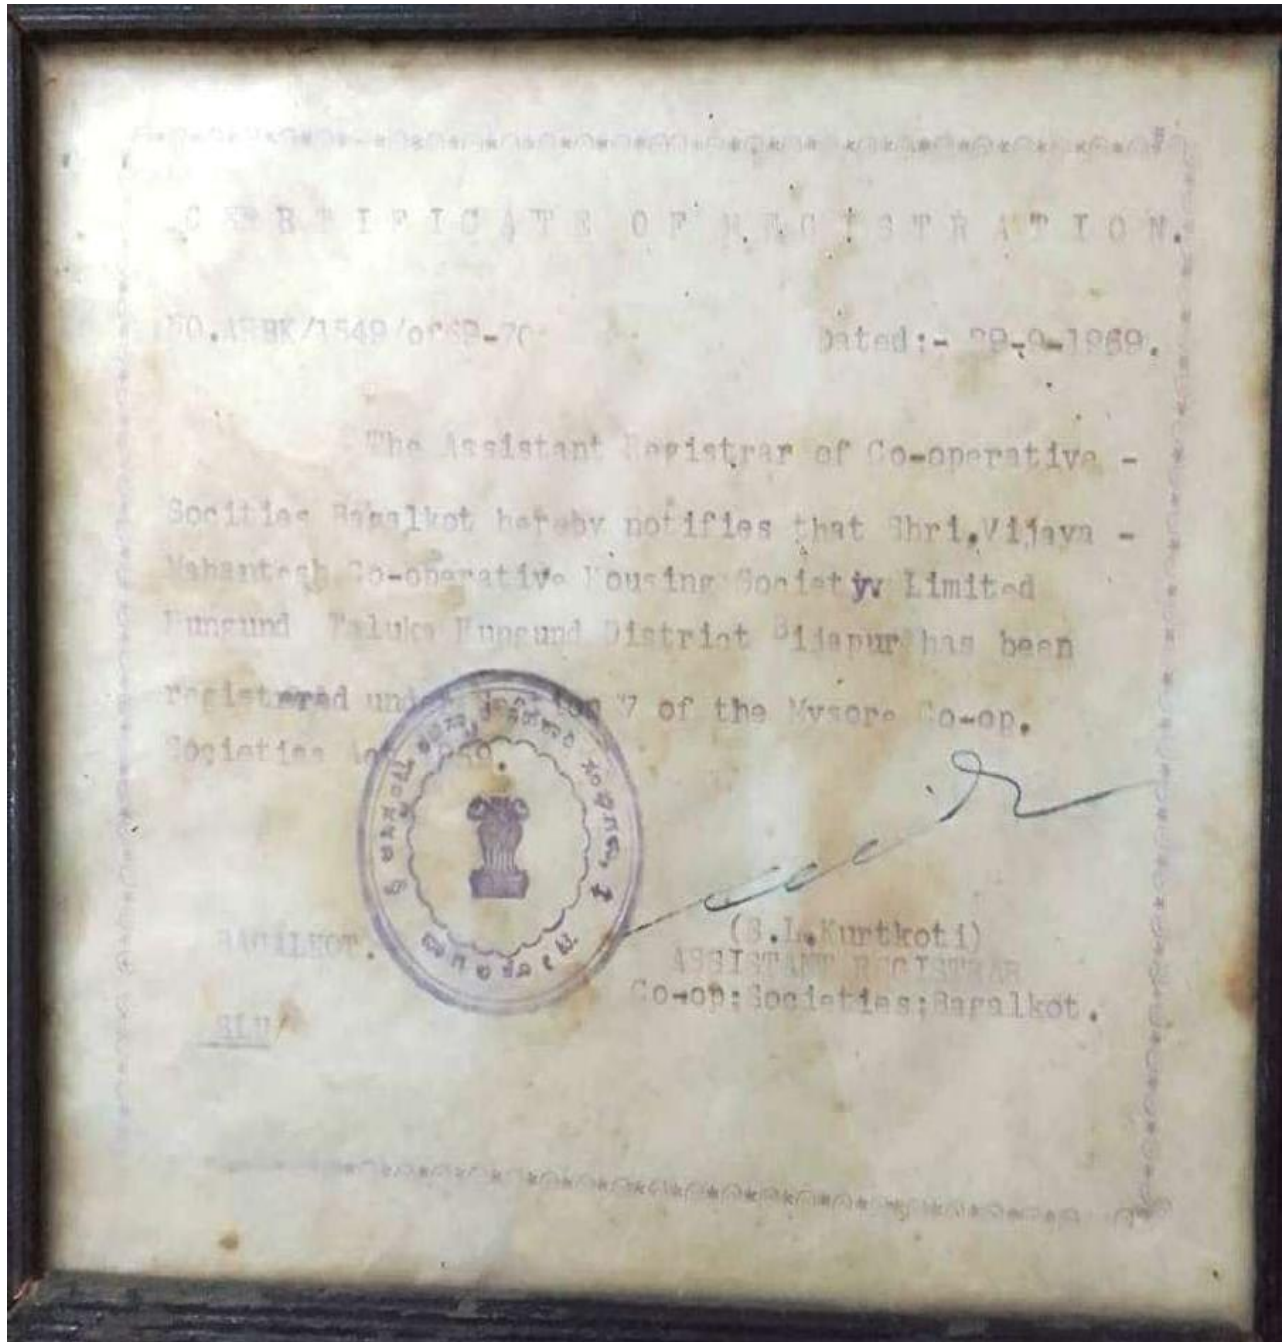 CERTIFICATE OF REGISTRATION.
Dated:- 29-9-1969.
The Assistant Registrar of Co-operative -
Socities Bagalkot hereby notifies that Shri.Vijaya -
Mahantesh Co-operative Housing Society Limited
Hungund Taluka Hungund District Bijapur has been
registered under 7 of the Mysore Co-op.
Societies
BAGALKOT.
(S.L.Kurtkoti)
ASSISTANT REGISTRAR
Co-op:Societies;Bagalkot.